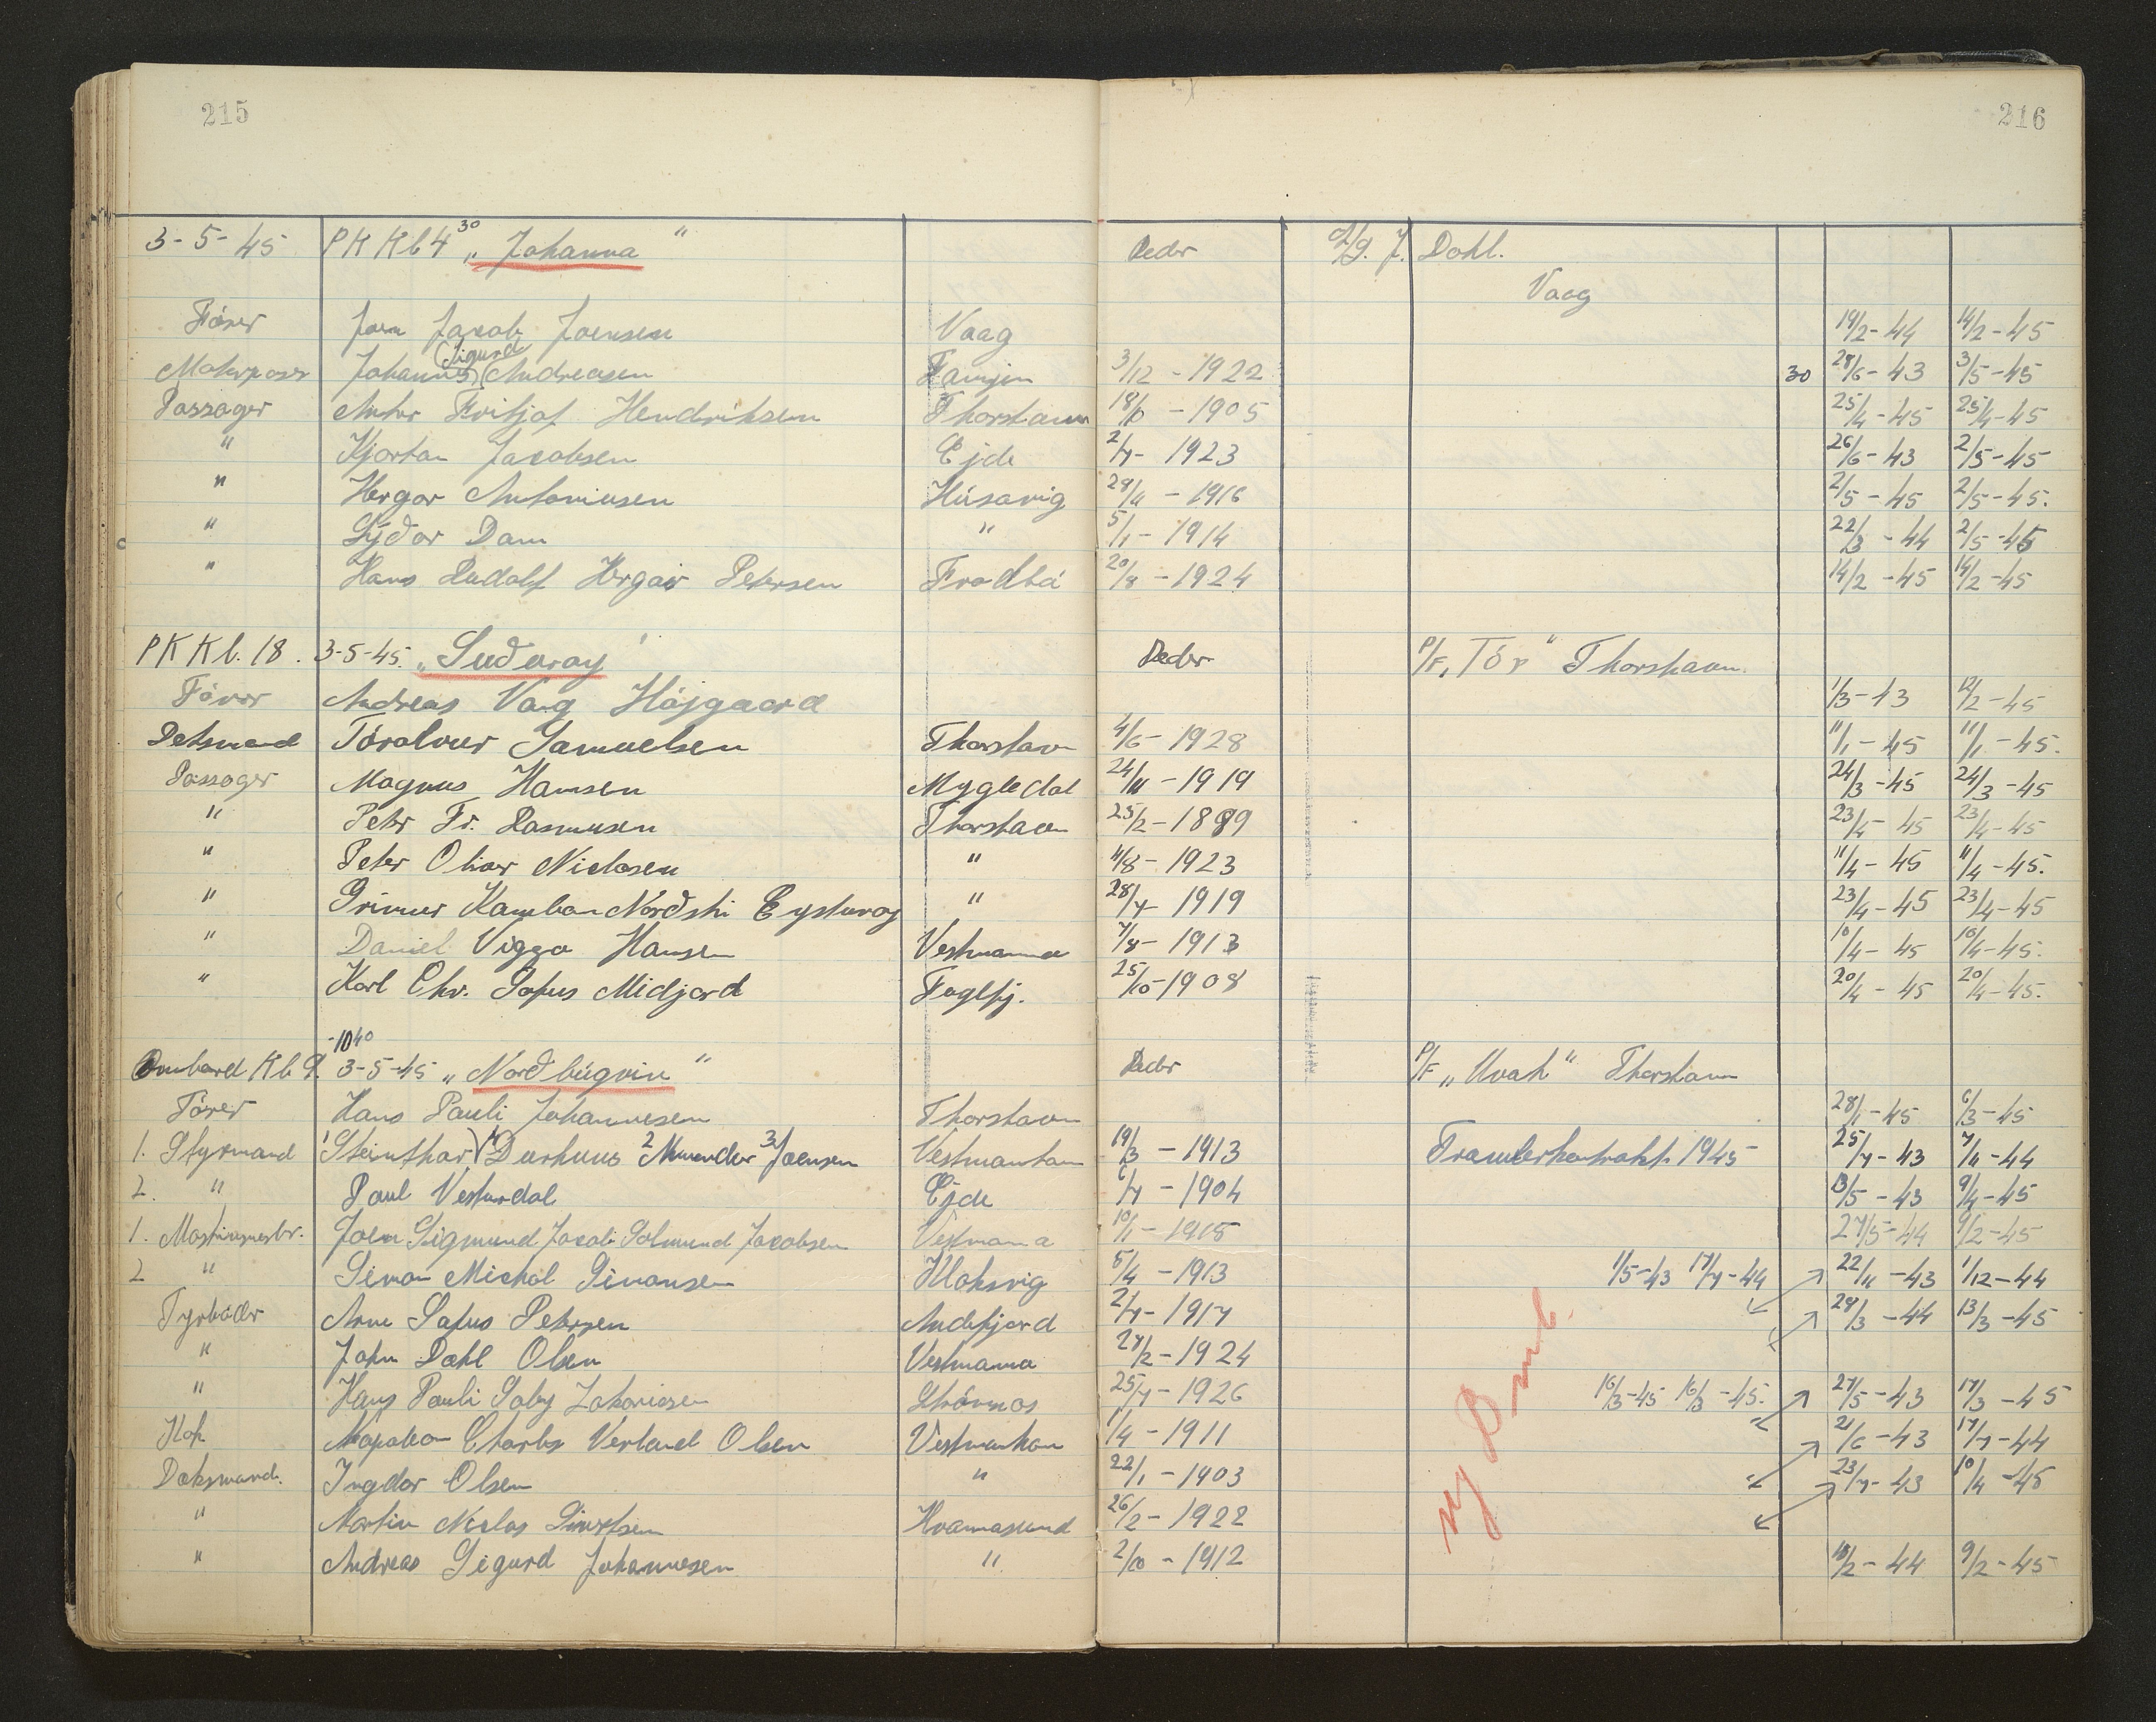 215 216
3-5-45 PK Kl 4 30 „Johanna" Reder A/S. J. Dahl.
Vaag
Fører Joen Jacob Joensen Vaag 19/2-44 14/2-45
Motorpasser Johannes (Sigurd) Andreasen Famjin 3/12-1922 30 28/6-43 3/5-45
Passager Anton Fritjof Hendriksen Thorshavn 18/10-1905 25/4-45 25/4-45
" Kjartan Jacobsen Ejde 2/7-1923 26/6-43 2/5-45
" Hergar Antoniusen Húsavig 29/11-1916 2/5-45 2/5-45.
" Lýðar Dam " 5/1-1914 22/3-44 2/5-45
" Hans Rudolf Hergeir Petersen Frodbá 20/8-1924 14/2-45 14/2-45
PK Kl. 18. 3-5-45. „Suduroy" Reder P/F. „Tór" Thorshavn.
Fører Andreas Vang Højgaard 1/3-43 12/2-45
Detsmand Tóralvur Samuelsen Thorshavn 4/6-1928 11/1-45 11/1-45.
Passager Magnus Hansen Mygledal 24/11-1919 24/3-45 24/3-45
" Peter Fr. Rasmusen Thorshavn 25/2-1889 23/4-45 23/4-45
" Peter Oliver Niclasen " 4/8-1923 11/4-45 11/4-45.
" Grimur Kamban Norðstri Eysturoy " 28/7-1919 23/4-45 23/4-45
" Daniel Viggo Hansen Vestmanna 7/8-1913 10/4-45 10/4-45.
" Karl Chr. Sofus Midjord Fuglfj. 25/10-1908 20/4-45 20/4-45.
-10 40
Ombord Kl 9. 3-5-45 „Norðbúgvin" Reder P/F „Uvak" Thorshavn
Fører Hans Pauli Johannesen Thorshavn 28/1-45 6/3-45
1. Styrmand 1 Steinthor) 4 Durhuus 2 Amundur 3 Joensen Vestmanhavn 19/3-1913 Trawlerkontrakt 1945 25/7-43 7/11-44
2. " Paul Vesturdal Ejde 6/7-1904 13/5-43 9/4-45
1. Maskinmester. Joen Sigmund Jacob Solmund Jacobsen Vestmanna 10/1-1918 27/5-44 9/2-45
2 " Simon Michal Simonsen Klaksvig 5/4-1913 1/5-43 17/7-44 22/11-43 1/12-44
Fyrbøder Arne Sofus Petersen Andefjord 2/7-1917 29/3-44 13/3-45
" John Dahl Olsen Vestmanna 27/2-1924
" Hans Pauli Saby Zakariasen Strømnæs 25/7-1926 16/3-45 16/3-45. 27/5-43 17/3-45
Kok Napoleon Charles Verland Olsen Vestmanhavn 1/4-1911 21/6-43 17/7-44
Dæksmand. Ingdar Olsen " 22/1-1903 23/7-43 10/4-45
" Martin Niclas Sivertsen Hvannasund 26/2-1922
" Andreas Sigurd Johannesen " 2/10-1912 10/2-44 9/2-45
ny Bmb.